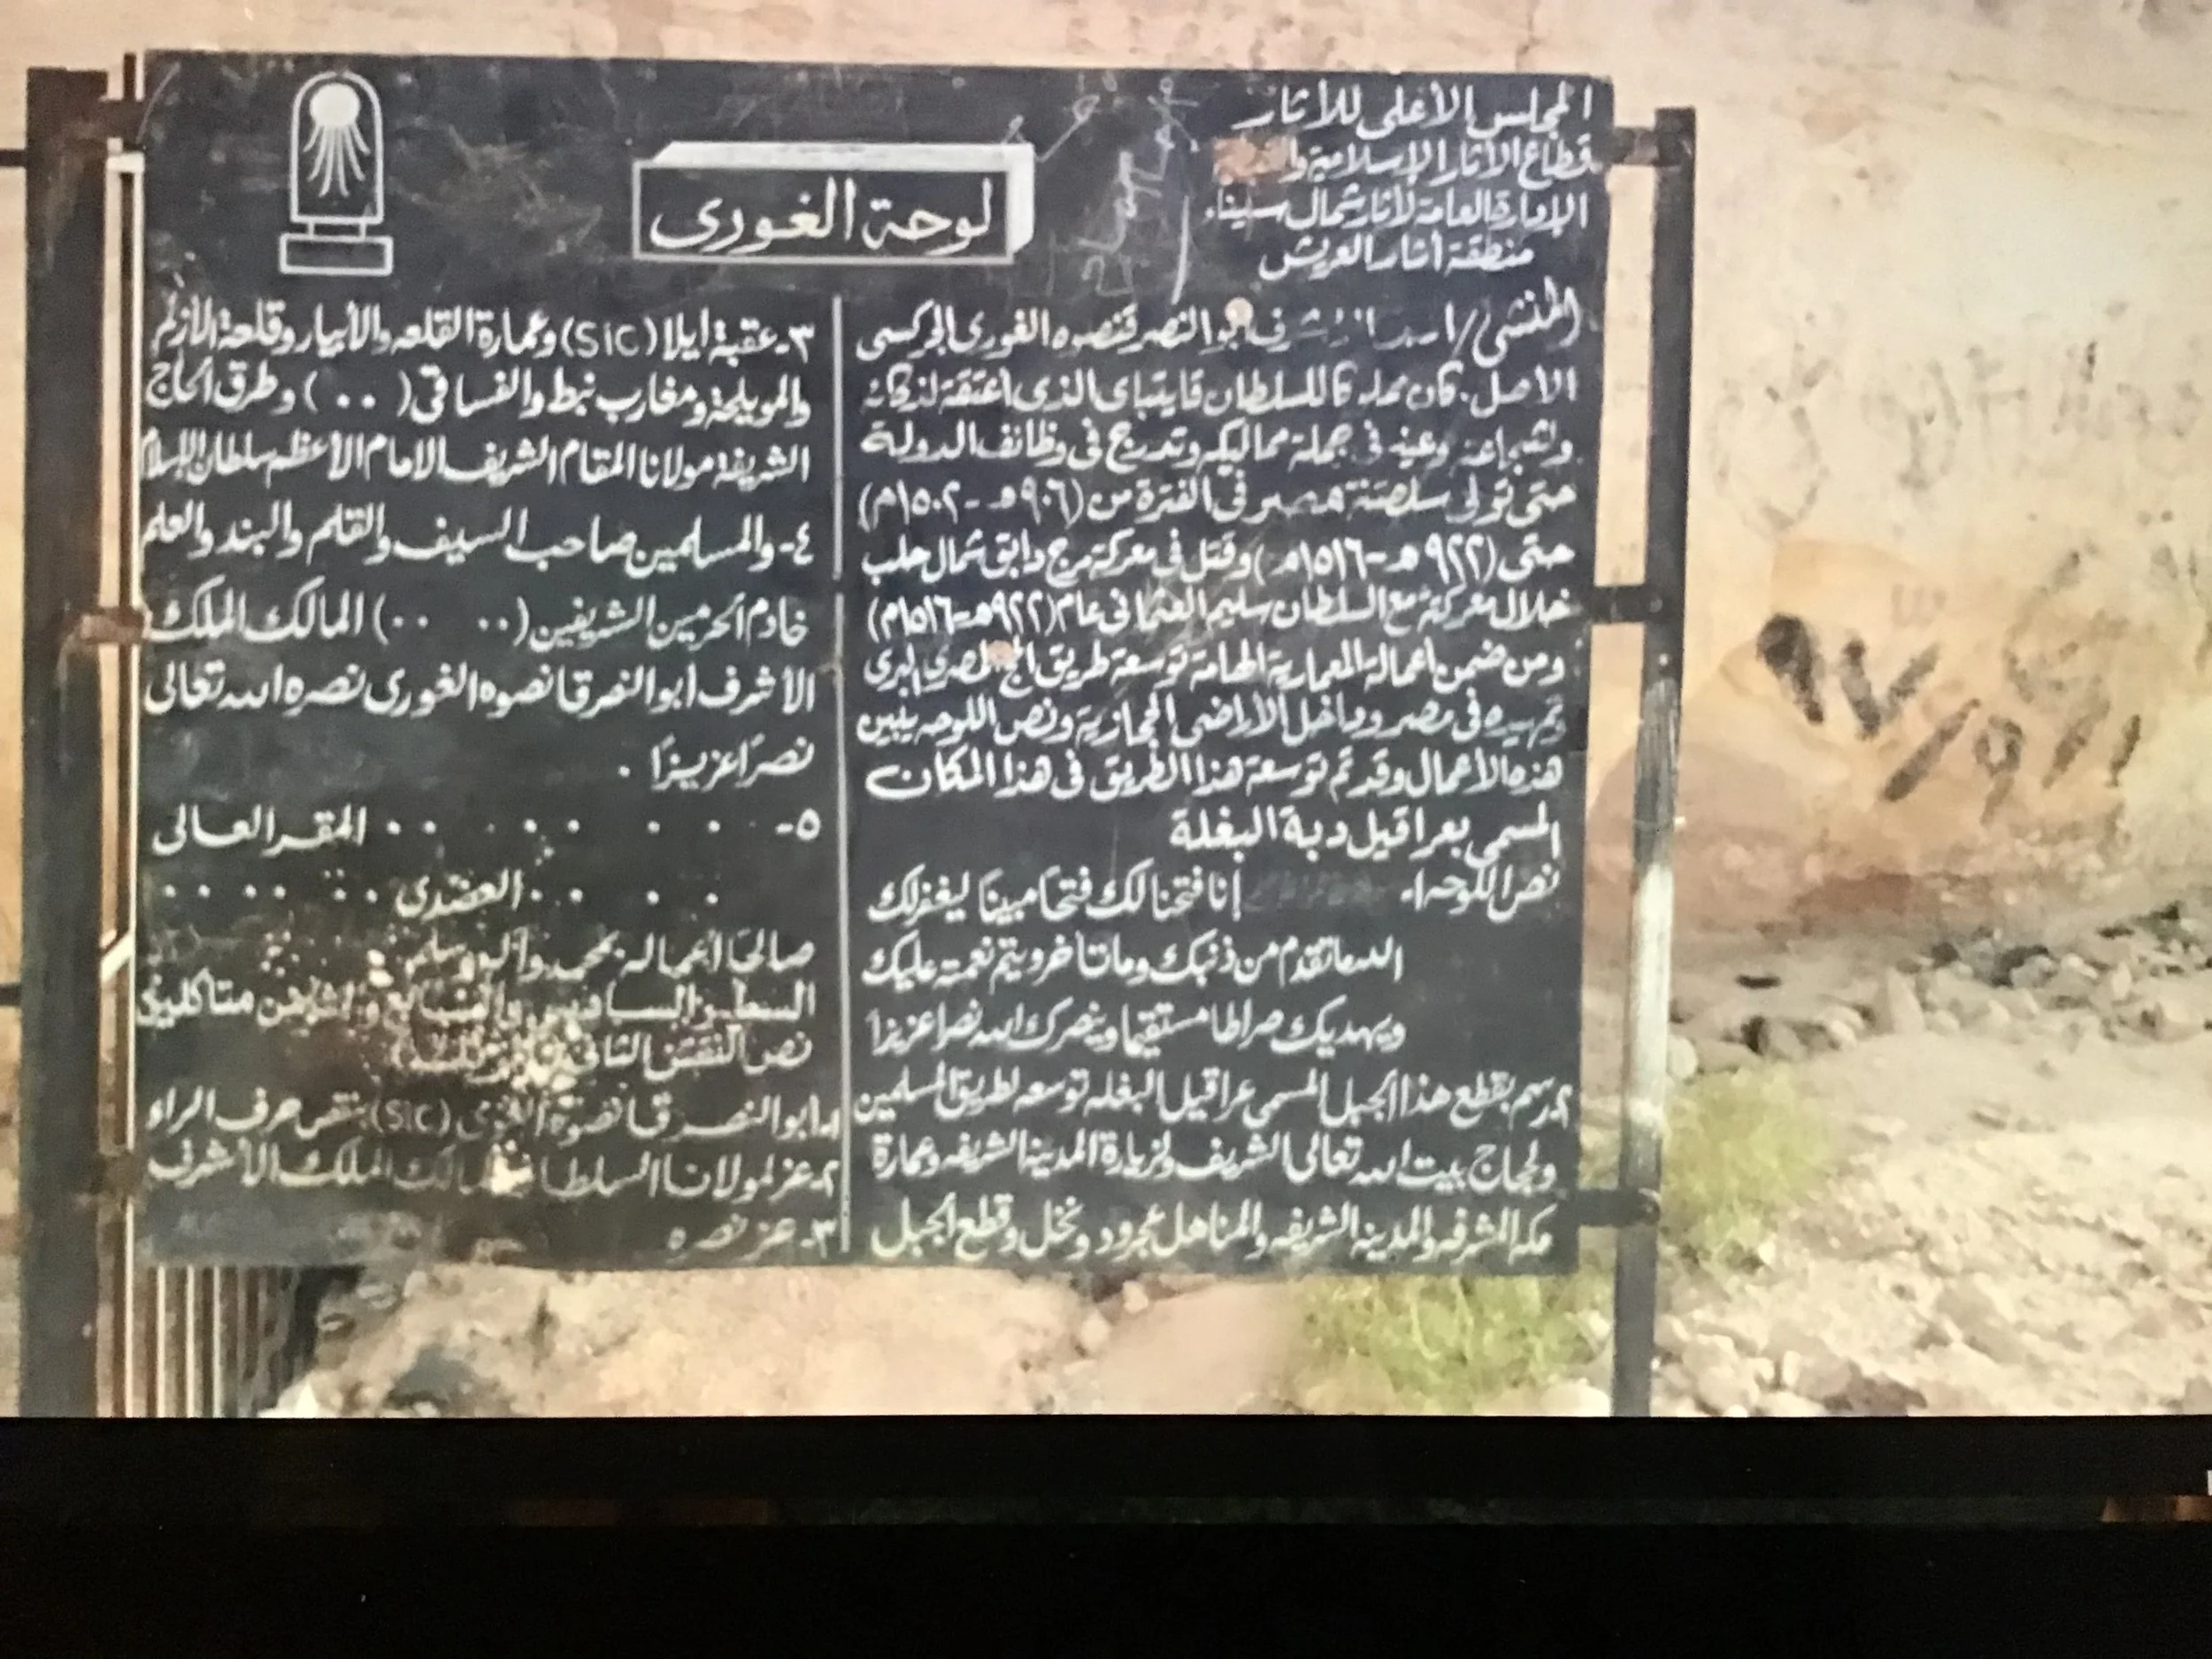 المجلس الأعلى للأثار
قطاع الأثار الإسلامية
الإدارة العامة لأثار شمال سيناء
منطقة أثار العريش
لوحة الغورى
المنشئ / أبو النصر قنصوه الغورى الجركسى
الأصل. كان مملوكا للسلطان قايتباى الذى أعتقة لذكائة
ولشجاعتة وعينه فى جملة مماليكه وتدرج فى وظائف الدولة
حتى تولى سلطنة مصر فى الفترة من (٩٠٦هـ - ١٥٠٢م)
حتى (٩٢٢هـ - ١٥١٦م) وقتل فى معركة مرج دابق شمال حلب
خلال معركتة مع السلطان سليم العثمانى عام (٩٢٢هـ - ١٥١٦م)
ومن ضمن أعمالة المعمارية الهامة توسعة طريق الحج المصرى البرى
وتمهيده فى مصر وداخل الأراضى الحجازية ونص اللوحه يبين
هذه الأعمال وقد تم توسعة هذا الطريق فى هذا المكان
المسمى بعراقيل دبة البغلة
نص اللوحه ١- إنا فتحنا لك فتحا مبينا ليغفر لك
الله ما تقدم من ذنبك وما تأخر ويتم نعمته عليك
ويهديك صراطا مستقيما وينصرك الله نصرا عزيزا
٢- رسم بقطع هذا الجبل المسمى عراقيل البغله توسعه لطريق المسلمين
ولحجاج بيت الله تعالى الشريف ولزيارة المدينه الشريفه وعمارة
مكه المشرفه والمدينه الشريفه والمناهل عجرود ونخل وقطع الجبل
٣- عقبة ايلا (SIC) وعمارة القلعه والأبيار وقلعة الأزلم
والمويلحة ومغارب نبط والفساقى ( ٠٠ ) وطرق الحاج
الشريفة مولانا المقام الشريف الامام الأعظم سلطان الإسلام
٤- والمسلمين صاحب السيف والقلم والبند والعلم
خادم الحرمين الشريفين ( ٠٠ ٠٠ ) المالك الملك
الأشرف أبو النصر قانصوه الغورى نصره الله تعالى
نصرًا عزيزًا .
٥- . . . . . . . . المقر العالى
. . . . . العضدى . . . . . . . .
صالحًا أعماله بمحمد وآله وسلم . . . .
السطر السادس والسابع والثامن متاكلين
نص النقش الثانى
١- أبو النصر قانصوة الغوى (SIC) بنقص حرف الراء
٢- عز لمولانا السلطان المالك الملك الأشرف
٣- عز نصره